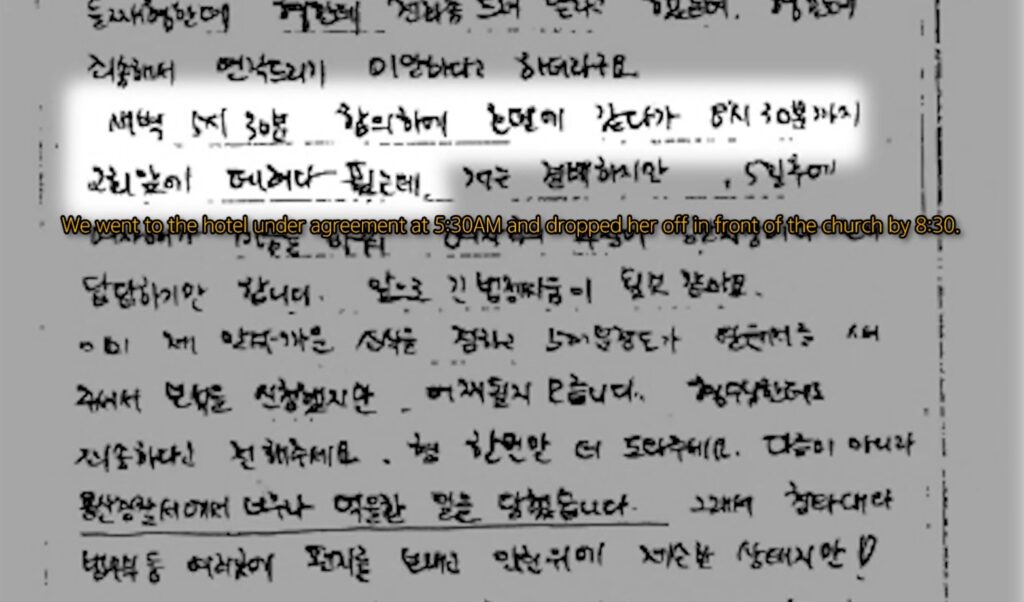 형한테 전화좀
죄송해서 연락드리기 미안하다고 하더라구요.
새벽 5시 30분 합의하에 호텔에 갔다가 8시 30분까지
교회앞에 데려다 줬는데. 저는 결백하지만 , 5일후에
We went to the hotel under agreement at 5:30AM and dropped her off in front of the church by 8:30.
답답하기만 합니다. 앞으로 긴 법정싸움이 될것 같아요.
이미 제 안타까운 소식을 접하고
주셔서 보석을 신청했지만 . 어찌될지 모릅니다. 형수님한테도
죄송하다고 전해주세요. 형 한번만 더 도와주세요. 다름이 아니라
용산경찰서에서 너무나 억울한 일을 당했습니다. 그래서 청와대와
법무부등 여러곳에 편지를 보내고 인권위에 제소한 상태지만